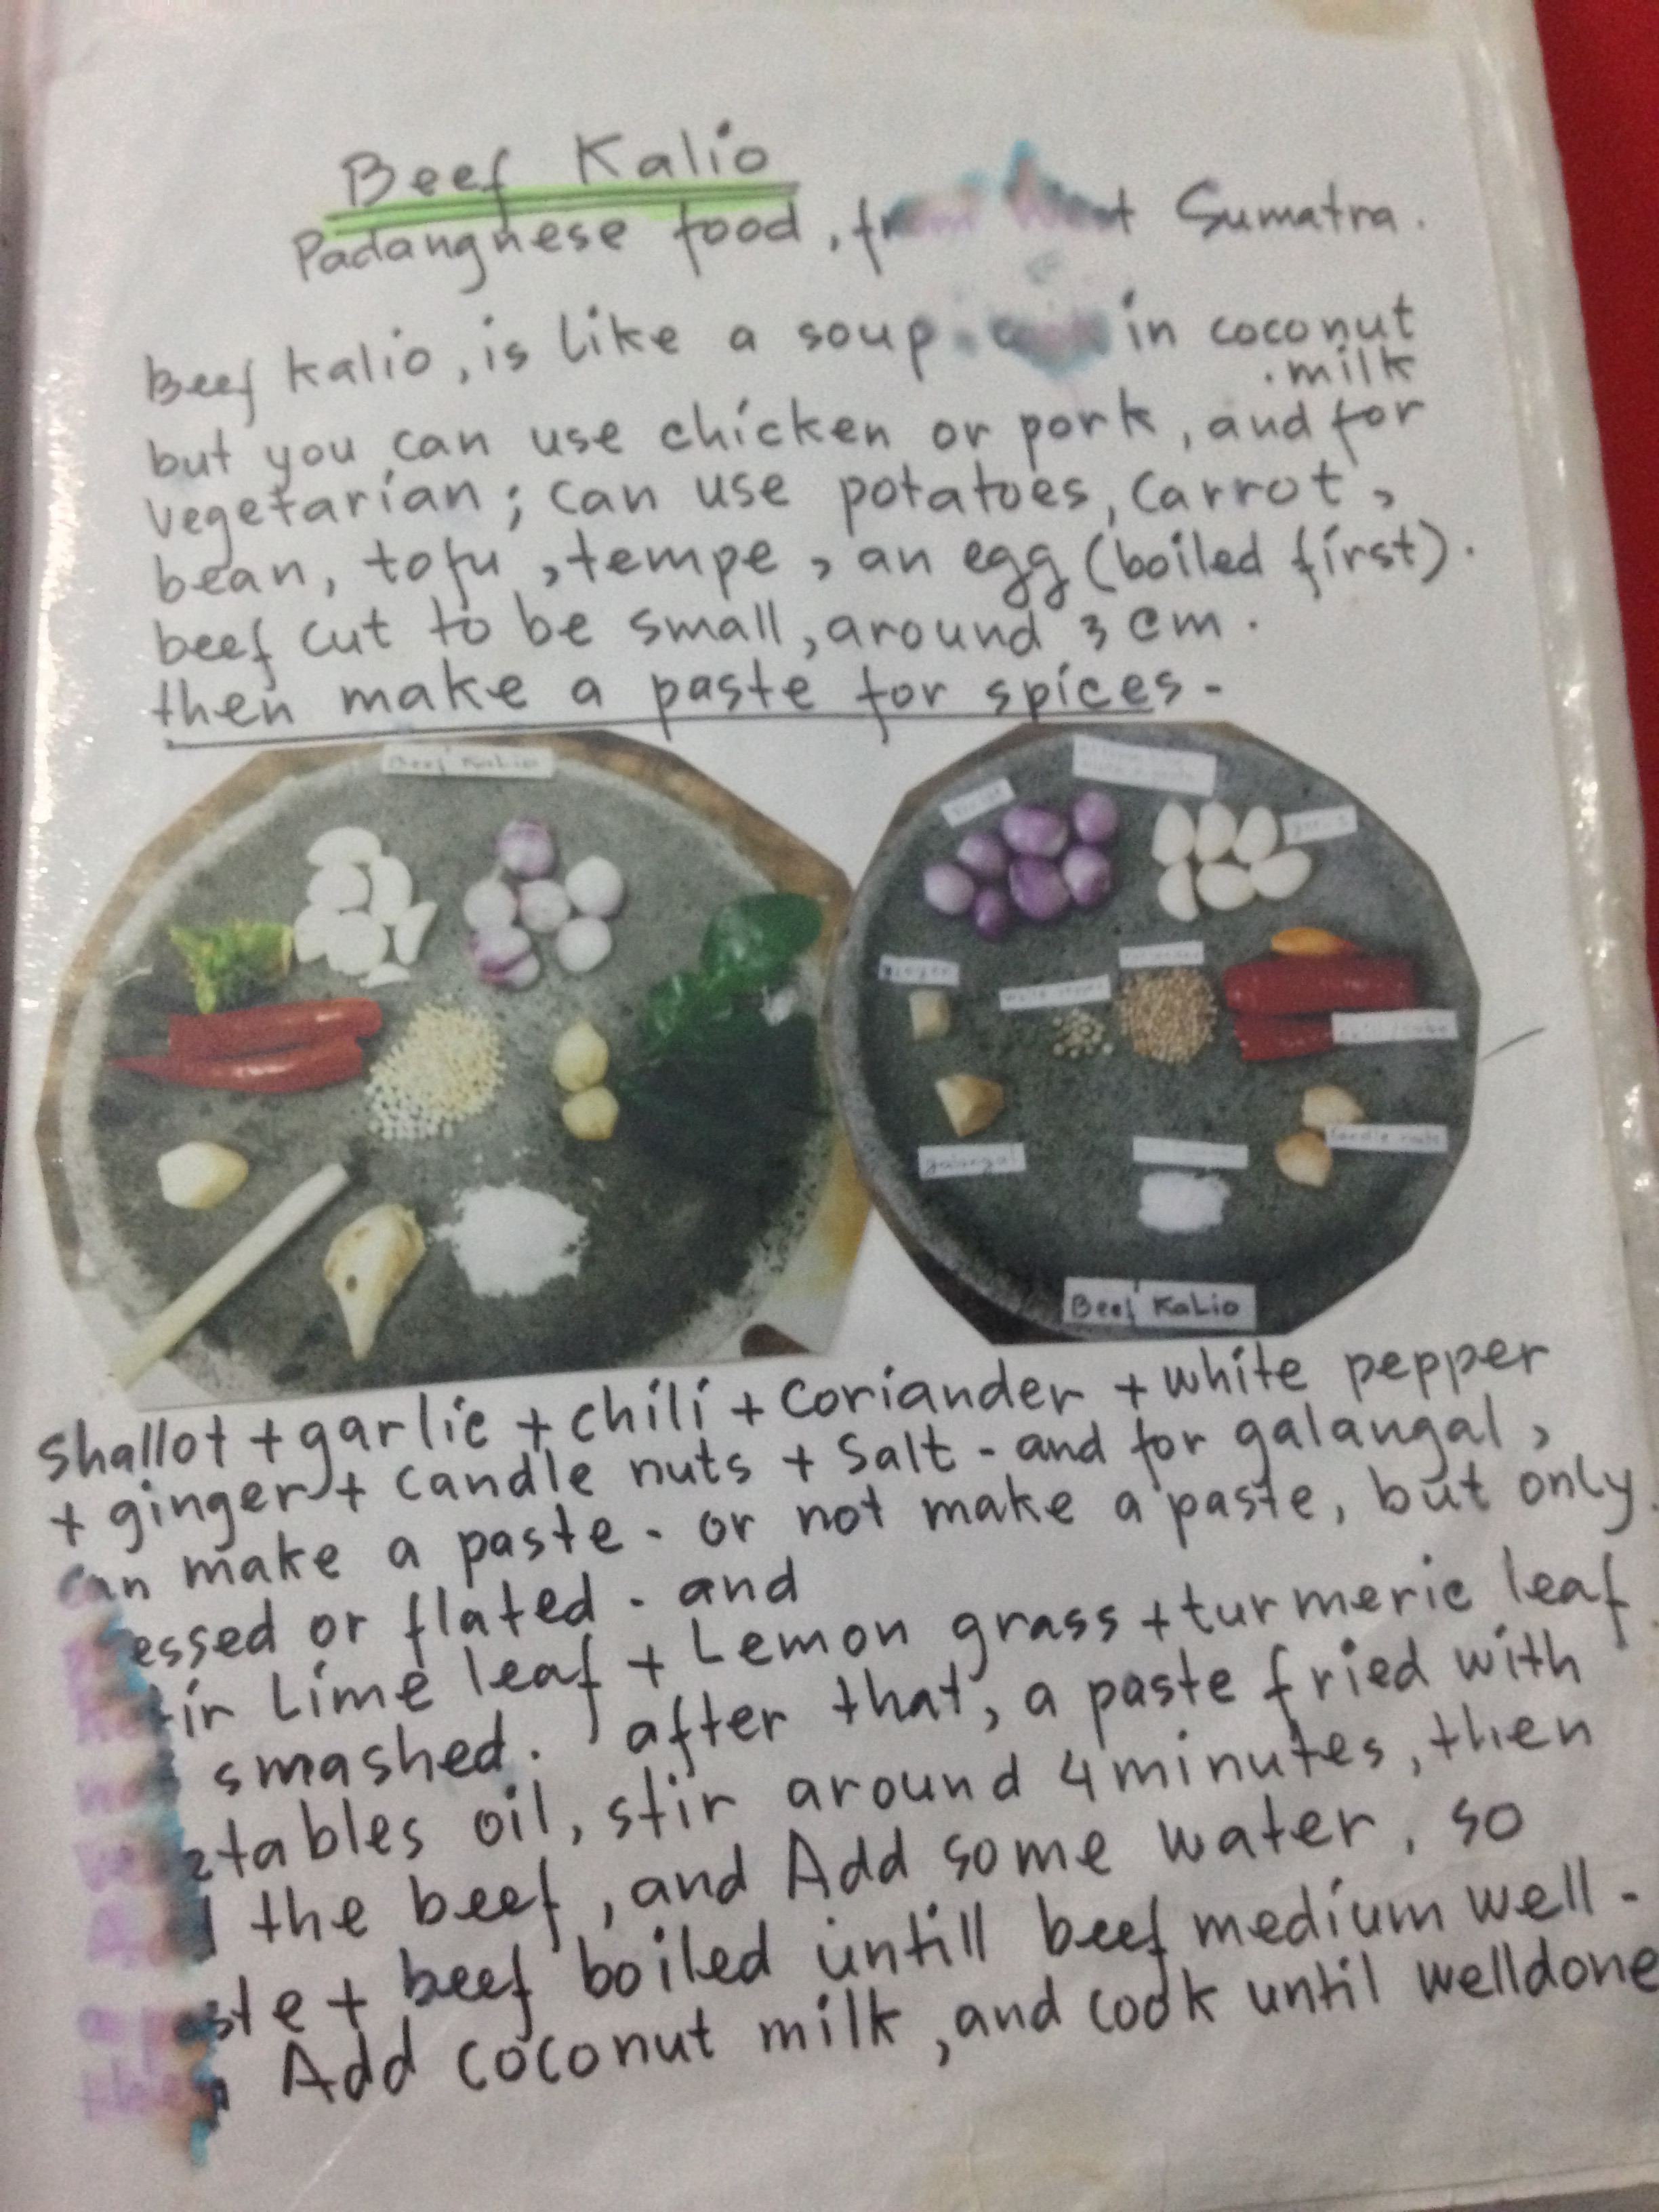 Beef Kalio
Padangnese food, from West Sumatra.
Beef kalio, is like a soup. in coconut
milk
but you can use chicken or pork, and for
vegetarian; can use potatoes, carrot,
bean, tofu, tempe, an egg (boiled first).
beef cut to be small, around 3 cm.
then make a paste for spices-
Beef Kalio
shallot
garlic
ginger
white pepper
coriander
galangal
candle nuts
Beef Kalio
Shallot + garlic + chili + Coriander + white pepper
+ ginger + candle nuts + Salt - and for galangal,
can make a paste - or not make a paste, but only
essed or flated. and
ir Lime leaf + Lemon grass + turmeric leaf
smashed. after that, a paste fried with
etables oil, stir around 4 minutes, then
the beef, and Add some water, so
a paste + beef boiled untill beef medium well -
then Add coconut milk, and cook until welldone